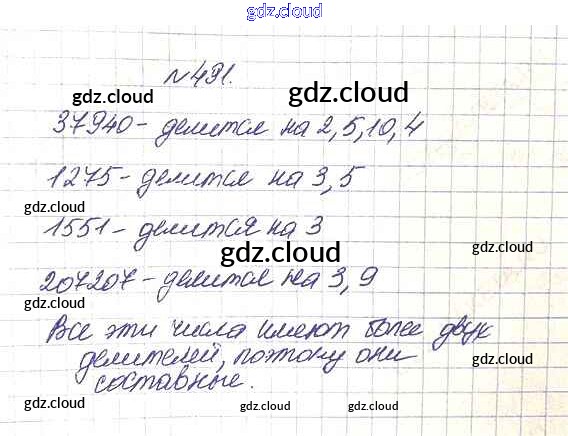 gdz.cloud
№491.
gdz.cloud
gdz.cloud
37940 - делится на 2, 5, 10, 4
gdz.cloud
1275 - делится на 3, 5
gdz.cloud
1551 - делится на 3
gdz.cloud
gdz.cloud
207207 - делится на 3, 9
gdz.cloud
Все эти числа имеют более двух
делителей, поэтому они
составные.
gdz.cloud
gdz.cloud
gdz.cloud
gdz.cloud